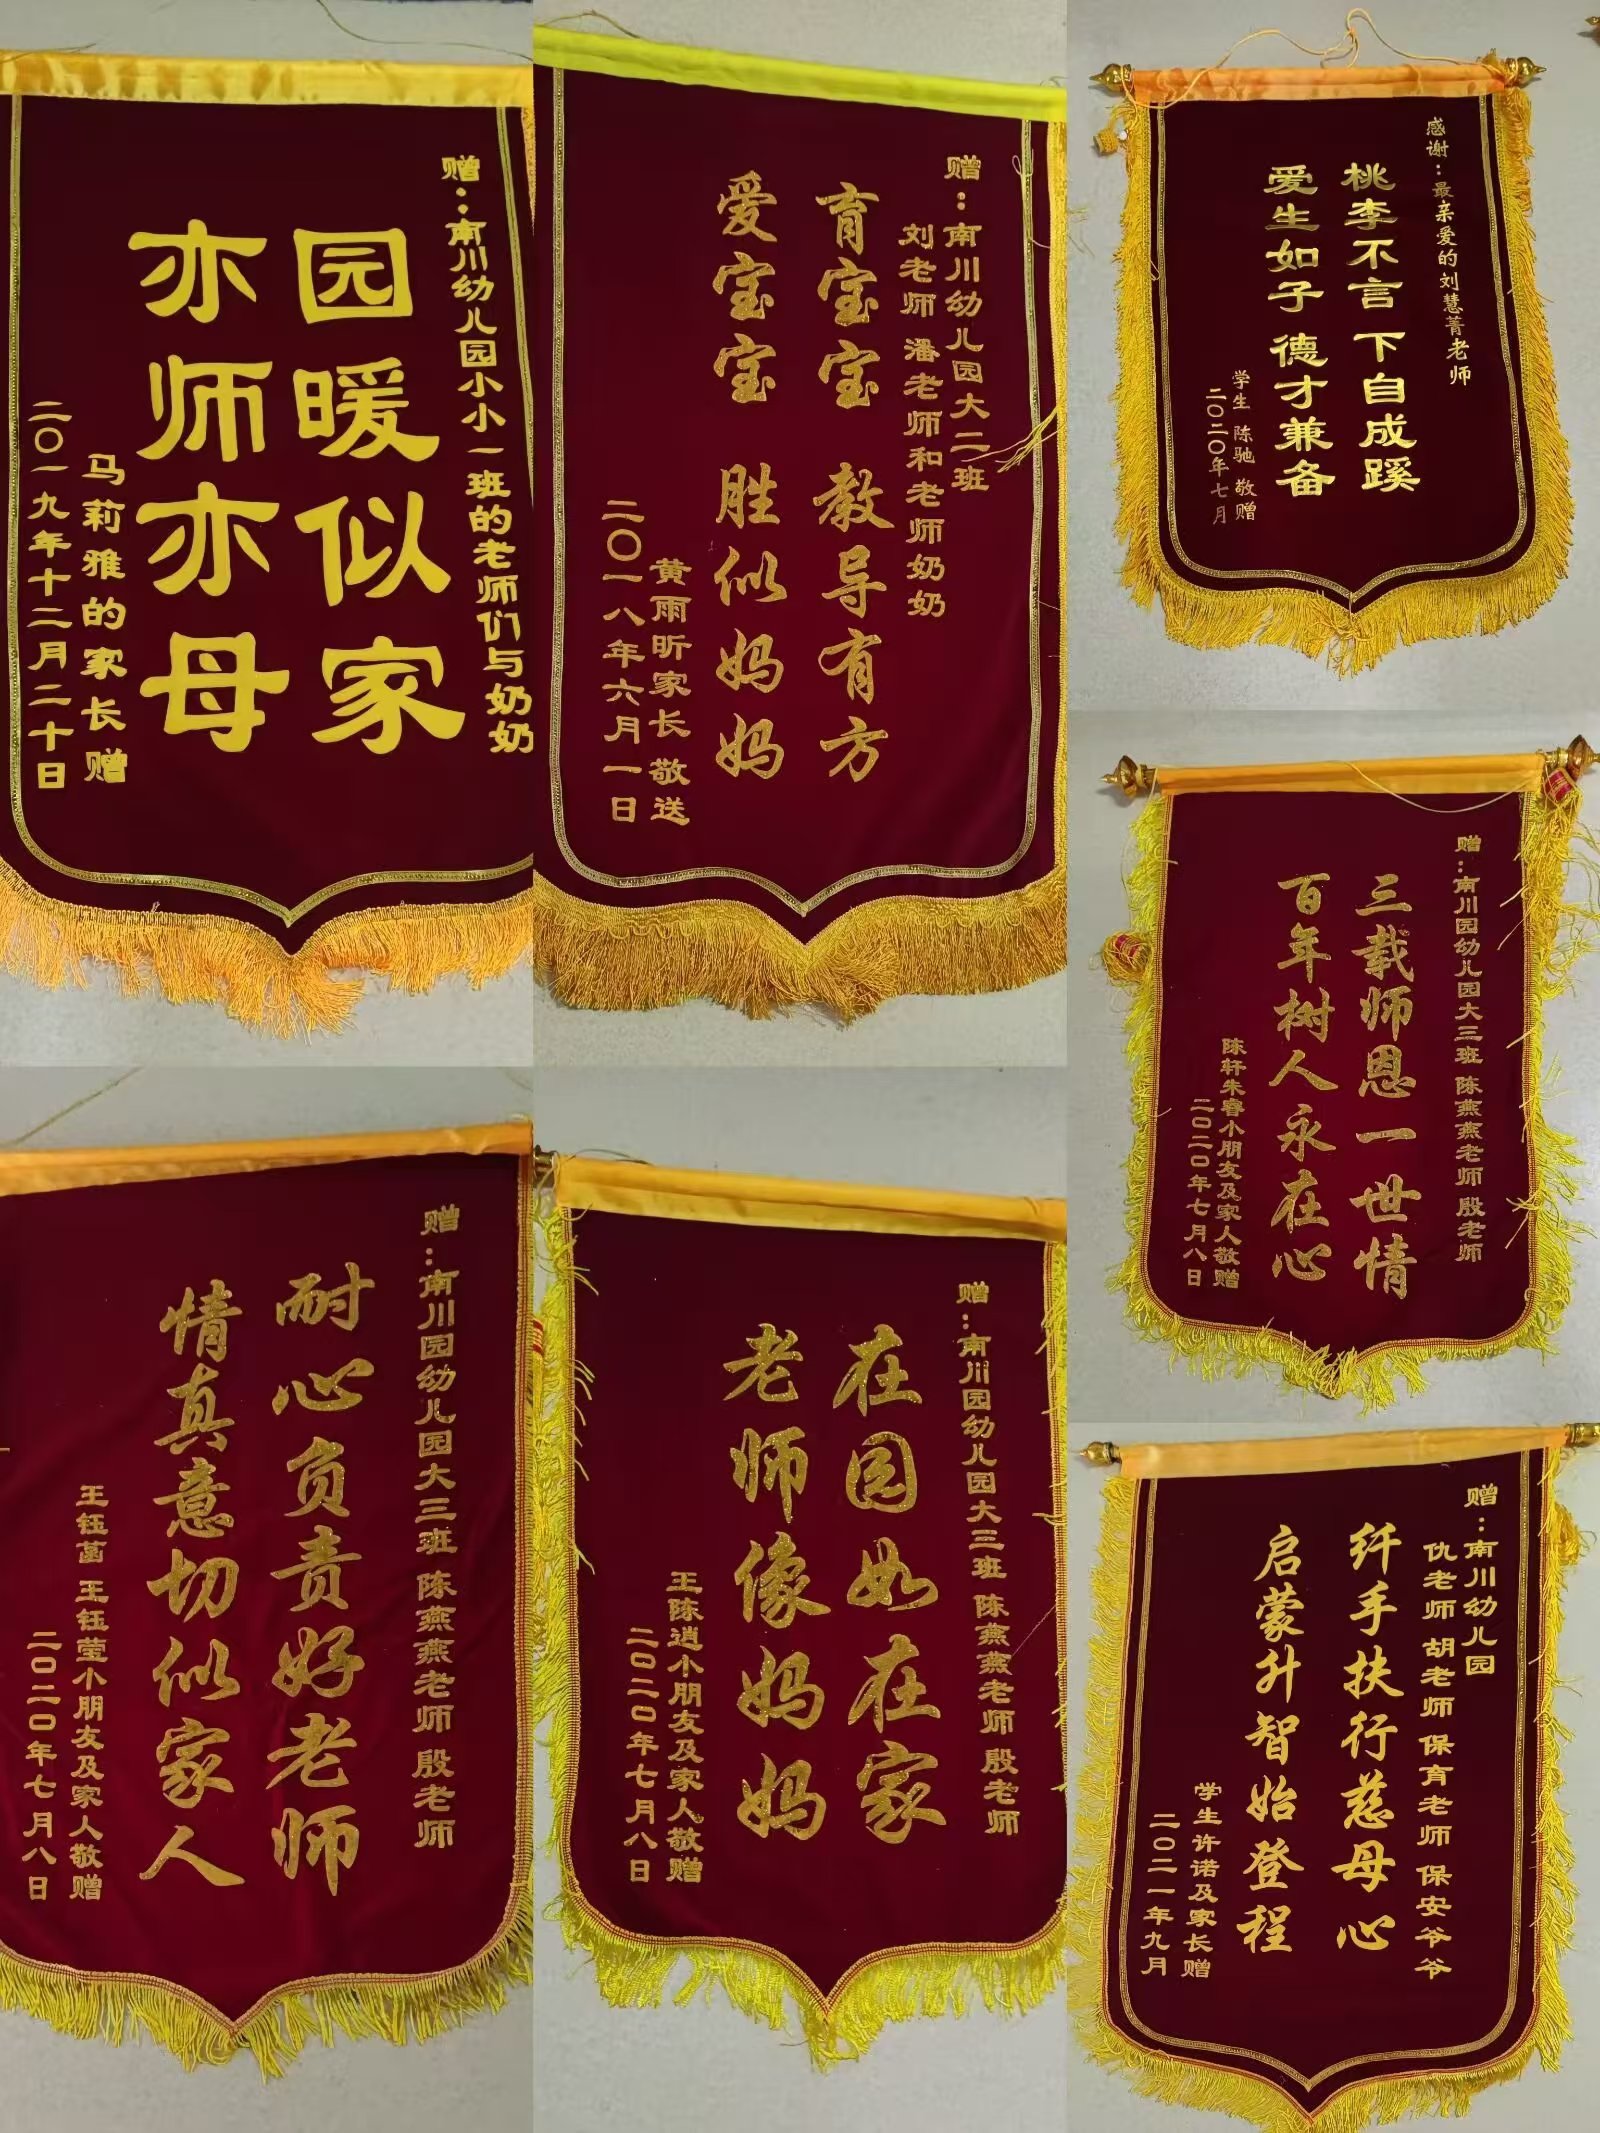 赠：南川幼儿园小小一班的老师们与奶奶
园暖似家
亦师亦母
马莉雅的家长赠
二〇一九年十二月二十日
赠：南川幼儿园大二班
刘老师 潘老师和老师奶奶
育宝宝 教导有方
爱宝宝 胜似妈妈
黄雨昕家长 敬送
二〇一八年六月一日
感谢：最亲爱的刘慧菁老师
桃李不言 下自成蹊
爱生如子 德才兼备
学生 陈驰 敬赠
二〇二〇年七月
赠：南川园幼儿园大三班 陈燕燕老师 殷老师
三载师恩一世情
百年树人永在心
陈轩朱睿小朋友及家人敬赠
二〇二〇年七月八日
赠：南川园幼儿园大三班 陈燕燕老师 殷老师
耐心负责好老师
情真意切似家人
王钰菡 王钰莹小朋友及家人敬赠
二〇二〇年七月八日
赠：南川园幼儿园大三班 陈燕燕老师 殷老师
在园如在家
老师像妈妈
王陈逍小朋友及家人敬赠
二〇二〇年七月八日
赠：南川幼儿园
仇老师 胡老师 保育老师 保安爷爷
纤手扶行慈母心
启蒙升智始登程
学生许诺及家长赠
二〇二一年九月